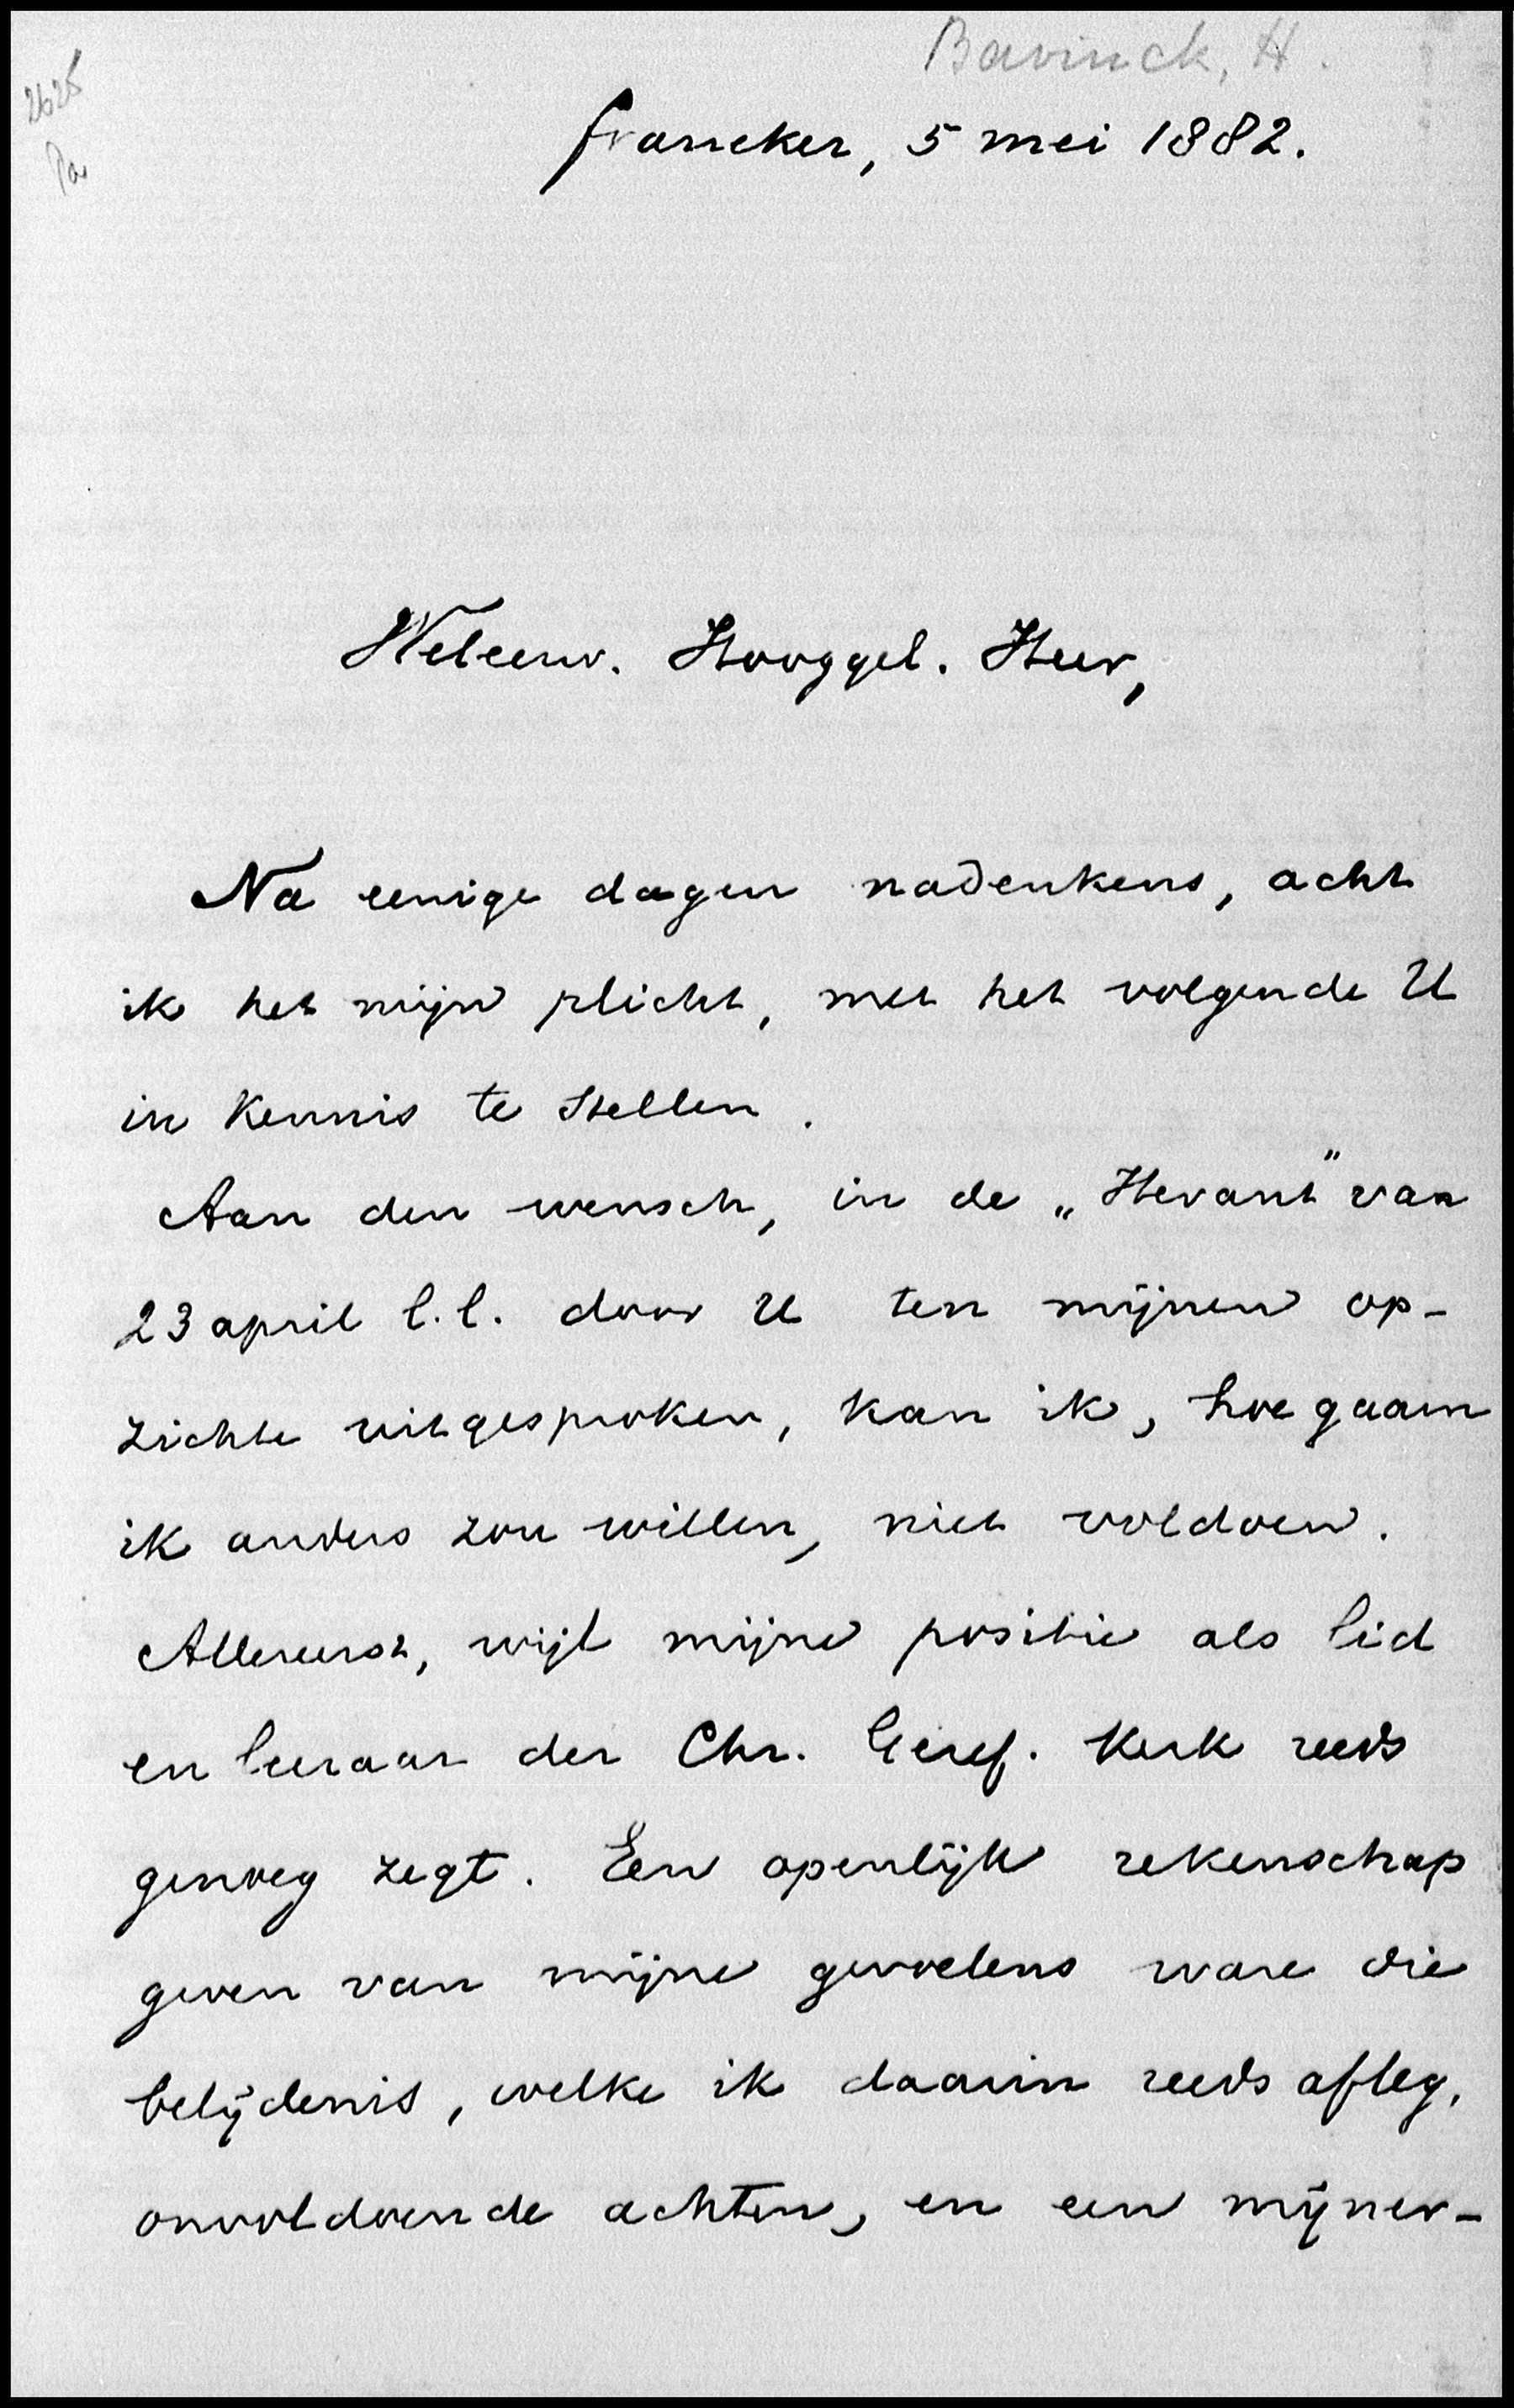 Bavinck, H.
2625
Pa
franeker, 5 mei 1882.
Weleerw. Hooggel. Heer,
Na eenige dagen nadenkens, acht
ik het mijn plicht, met het volgende U
in kennis te stellen.
Aan den wensch, in de „Heraut" van
23 april l.l. door U ten mijnen op-
zichte uitgesproken, kan ik, hoe gaarn
ik anders zou willen, niet voldoen.
Allereerst, wijl mijne positie als lid
en leeraar der Chr. Geref. Kerk reeds
genoeg zegt. Een openlijk rekenschap
geven van mijne gevoelens ware die
belijdenis, welke ik daarin reeds afleg,
onvoldoende achten, en een mijner-